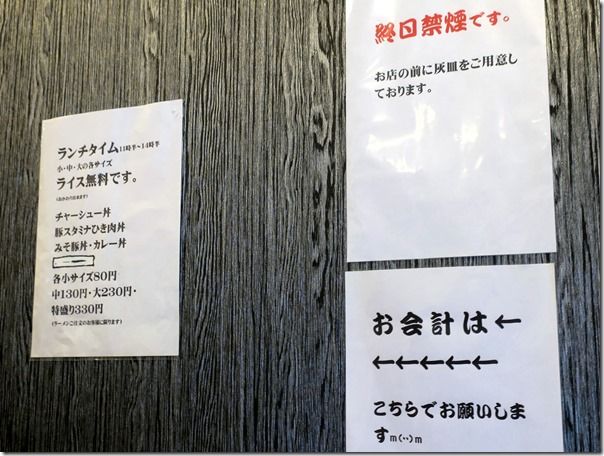 ランチタイム11時半~14時半
小・中・大の各サイズ
ライス無料です。
(おかわり出来ます)
チャーシュー丼
豚スタミナひき肉丼
みそ豚丼・カレー丼
各小サイズ80円
中130円・大230円・
特盛り330円
(ラーメンご注文のお客様に限ります)
終日禁煙です。
お店の前に灰皿をご用意し
ております。
お会計は←
←←←←←
こちらでお願いしま
すm(··)m